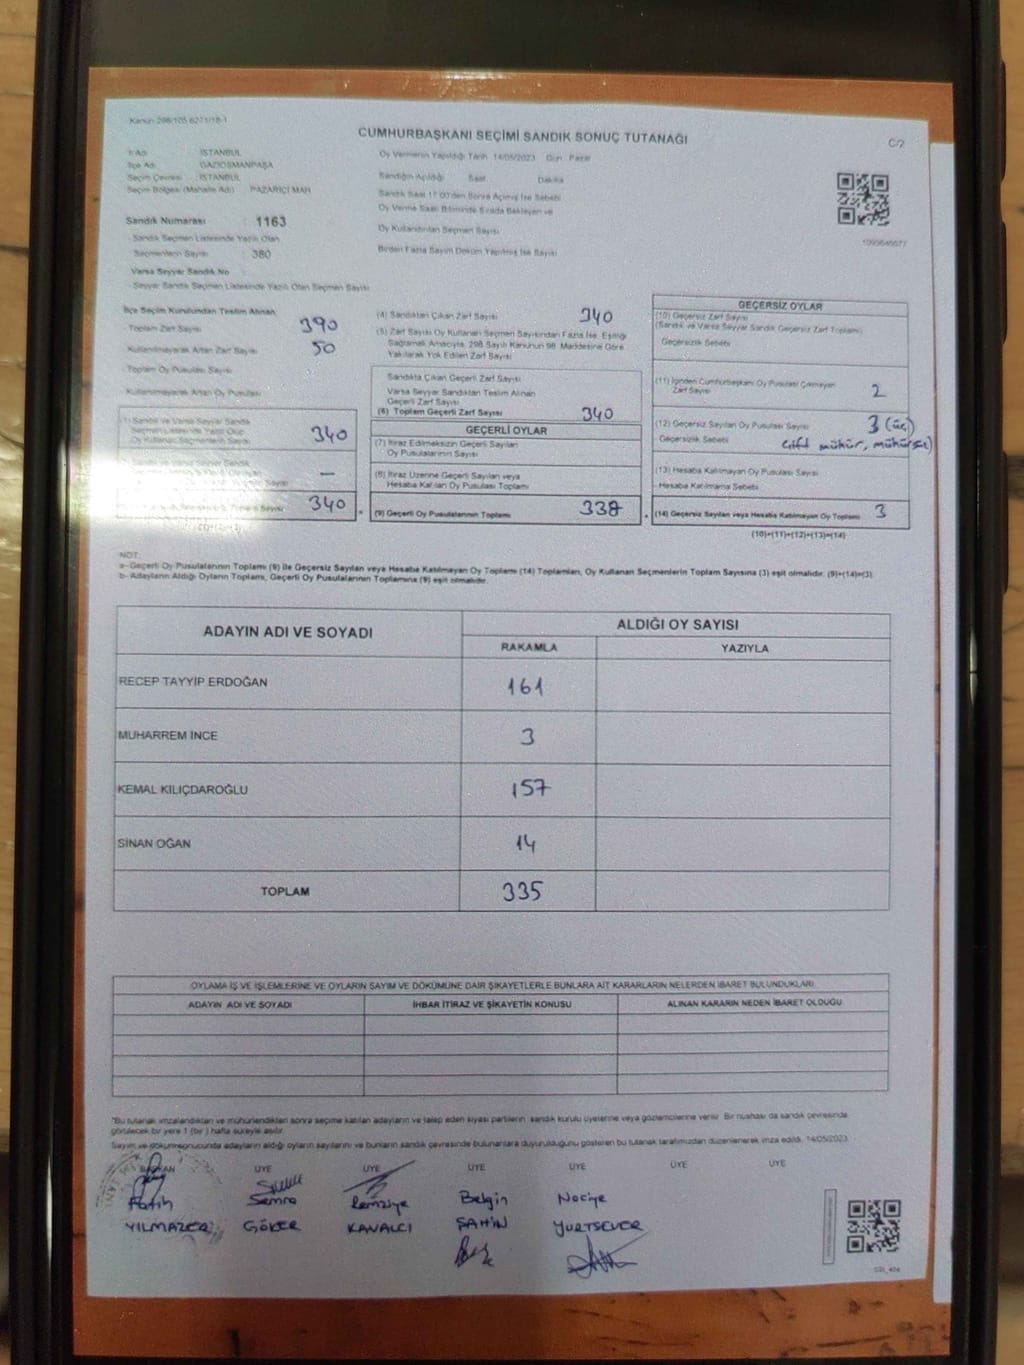 Kanun 298/105 6271/18-1
CUMHURBAŞKANI SEÇİMİ SANDIK SONUÇ TUTANAĞI
C/2
İl Adı : İSTANBUL
İlçe Adı : GAZİOSMANPAŞA
Seçim Çevresi : İSTANBUL
Seçim Bölgesi (Mahalle Adı) : PAZARİÇİ MAH
Sandık Numarası : 1163
Sandık Seçmen Listesinde Yazılı Olan
Seçmenlerin Sayısı : 380
Varsa Seyyar Sandık No
Seyyar Sandık Seçmen Listesinde Yazılı Olan Seçmen Sayısı
Oy Vermenin Yapıldığı Tarih 14/05/2023 Gün Pazar
Sandığın Açıldığı Saat Dakika
Sandık Saat 17:00'den Sonra Açılmış İse Sebebi
Oy Verme Saati Bitiminde Sırada Bekleyen ve
Oy Kullandırılan Seçmen Sayısı
Birden Fazla Sayım Döküm Yapılmış İse Sayısı
İlçe Seçim Kurulundan Teslim Alınan
Toplam Zarf Sayısı 390
Kullanılmayarak Artan Zarf Sayısı 50
Toplam Oy Pusulası Sayısı
Kullanılmayarak Artan Oy Pusulası
(1) Sandık ve Varsa Seyyar Sandık
Seçmen Listesinde Yazılı Olup
Oy Kullanan Seçmenlerin Sayısı 340
—
340
(4) Sandıktan Çıkan Zarf Sayısı 340
(5) Zarf Sayısı Oy Kullanan Seçmen Sayısından Fazla İse, Eşitliği
Sağlamak Amacıyla, 298 Sayılı Kanunun 98. Maddesine Göre
Yakılarak Yok Edilen Zarf Sayısı
Sandıkta Çıkan Geçerli Zarf Sayısı
Varsa Seyyar Sandıktan Teslim Alınan
Geçerli Zarf Sayısı
(6) Toplam Geçerli Zarf Sayısı 340
GEÇERLİ OYLAR
(7) İtiraz Edilmeksizin Geçerli Sayılan
Oy Pusulalarının Sayısı
(8) İtiraz Üzerine Geçerli Sayılan veya
Hesaba Katılan Oy Pusulası Toplamı
(9) Geçerli Oy Pusulalarının Toplamı 338
GEÇERSİZ OYLAR
(10) Geçersiz Zarf Sayısı
(Sandık ve Varsa Seyyar Sandık Geçersiz Zarf Toplamı)
Geçersizlik Sebebi
(11) İçinden Cumhurbaşkanı Oy Pusulası Çıkmayan
Zarf Sayısı 2
(12) Geçersiz Sayılan Oy Pusulası Sayısı 3 (üç)
Geçersizlik Sebebi çift mühür, mühürsüz
(13) Hesaba Katılmayan Oy Pusulası Sayısı
Hesaba Katılmama Sebebi
(14) Geçersiz Sayılan veya Hesaba Katılmayan Oy Toplamı 3
(10)+(11)+(12)+(13)=(14)
NOT:
a- Geçerli Oy Pusulalarının Toplamı (9) ile Geçersiz Sayılan veya Hesaba Katılmayan Oy Toplamı (14) Toplamları, Oy Kullanan Seçmenlerin Toplam Sayısına (3) eşit olmalıdır. (9)+(14)=(3)
b- Adayların Aldığı Oyların Toplamı, Geçerli Oy Pusulalarının Toplamına (9) eşit olmalıdır.
ADAYIN ADI VE SOYADI
ALDIĞI OY SAYISI
RAKAMLA YAZIYLA
RECEP TAYYİP ERDOĞAN 161
MUHARREM İNCE 3
KEMAL KILIÇDAROĞLU 157
SİNAN OĞAN 14
TOPLAM 335
OYLAMA İŞ VE İŞLEMLERİNE VE OYLARIN SAYIM VE DÖKÜMÜNE DAİR ŞİKAYETLERLE BUNLARA AİT KARARLARIN NELERDEN İBARET BULUNDUKLARI
ADAYIN ADI VE SOYADI İHBAR İTİRAZ VE ŞİKAYETİN KONUSU ALINAN KARARIN NEDEN İBARET OLDUĞU
"Bu tutanak imzalandıktan ve mühürlendikten sonra seçime katılan adayların ve talep eden siyasi partilerin sandık kurulu üyelerine veya gözlemcilerine verilir. Bir nüshası da sandık çevresinde
görülecek bir yere 1 (bir) hafta süreyle asılır.
Sayım ve döküm sonucunda adayların aldığı oyların sayılarını ve bunların sandık çevresinde bulunanlara duyurulduğunu gösteren bu tutanak tarafımızdan düzenlenerek imza edildi. 14/05/2023
BAŞKAN ÜYE ÜYE ÜYE ÜYE ÜYE ÜYE
Fatih Semra Remziye Belgin Naciye
YILMAZER GÖKER KAVALCI ŞAHİN YURTSEVER